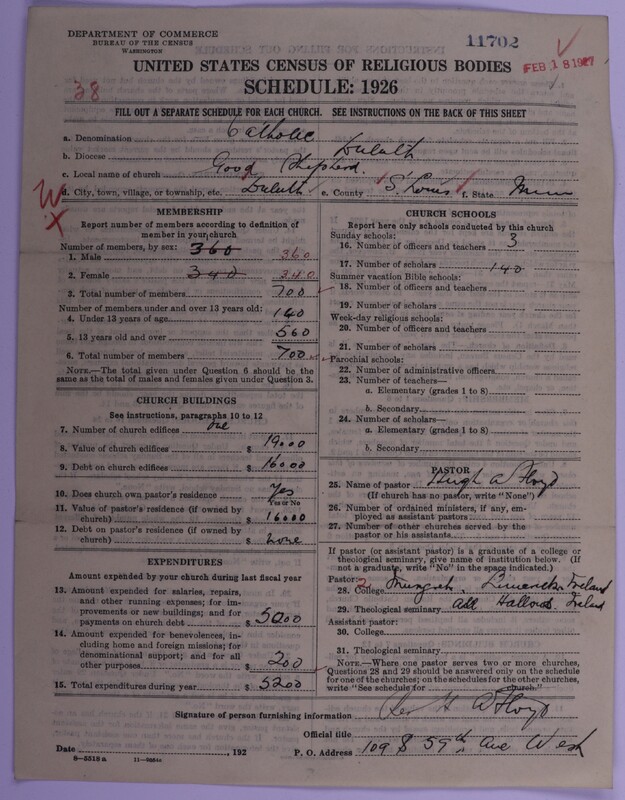 DEPARTMENT OF COMMERCE
BUREAU OF THE CENSUS
WASHINGTON
11702
FEB 18 1927
UNITED STATES CENSUS OF RELIGIOUS BODIES
38
SCHEDULE: 1926
FILL OUT A SEPARATE SCHEDULE FOR EACH CHURCH. SEE INSTRUCTIONS ON THE BACK OF THIS SHEET
a. Denomination Catholic
b. Diocese Duluth
c. Local name of church Good Shepherd.
d. City, town, village, or township, etc. Duluth e. County St. Louis f. State Minn
MEMBERSHIP
Report number of members according to definition of member in your church
Number of members, by sex: 360
1. Male 360
2. Female 340 340
3. Total number of members 700
Number of members under and over 13 years old:
4. Under 13 years of age 140
5. 13 years old and over 560
6. Total number of members 700
NOTE.—The total given under Question 6 should be
same as the total of males and females given under Question 3.
CHURCH BUILDINGS
See instructions, paragraphs 10 to 12
7. Number of church edifices one
8. Value of church edifices $ 19000
9. Debt on church edifices $ 16000
10. Does church own pastor's residence Yes
Yes or No
11. Value of pastor's residence (if owned by
church) $ 16000
12. Debt on pastor's residence (if owned by
church) $ none
EXPENDITURES
Amount expended by your church during last fiscal year
13. Amount expended for salaries, repairs,
and other running expenses; for im-
provements or new buildings; and for
payments on church debt $ 5000
14. Amount expended for benevolences, in-
cluding home and foreign missions; for
denominational support; and for all
other purposes $ 200
15. Total expenditures during year $ 5200
CHURCH SCHOOLS
Report here only schools conducted by this church
Sunday schools:
16. Number of officers and teachers 3
17. Number of scholars 140
Summer vacation Bible schools:
18. Number of officers and teachers
19. Number of scholars
Week-day religious schools:
20. Number of officers and teachers
21. Number of scholars
Parochial schools:
22. Number of administrative officers
23. Number of teachers—
a. Elementary (grades 1 to 8)
b. Secondary
24. Number of scholars—
a. Elementary (grades 1 to 8)
b. Secondary
PASTOR
25. Name of pastor Hugh A Floyd
(If church has no pastor, write "None")
26. Number of ordained ministers, if any, em-
ployed as assistant pastors
27. Number of other churches served by the
pastor or his assistants
If pastor (or assistant pastor) is a graduate of a college or
theological seminary, give name of institution below. (If
not a graduate, write "No" in the space indicated.)
Pastor:
28. College Mungret. Limerick, Ireland
29. Theological seminary All Hallows. Ireland
Assistant pastor:
30. College
31. Theological seminary
NOTE.—Where one pastor serves two or more churches,
Questions 28 and 29 should be answered only on the schedule
for one of the churches; on the schedules for the other churches,
write "See schedule for church."
Signature of person furnishing information Rev H A Floyd
Official title
Date , 192 P. O. Address 109 S 59th Ave West
8—5518a